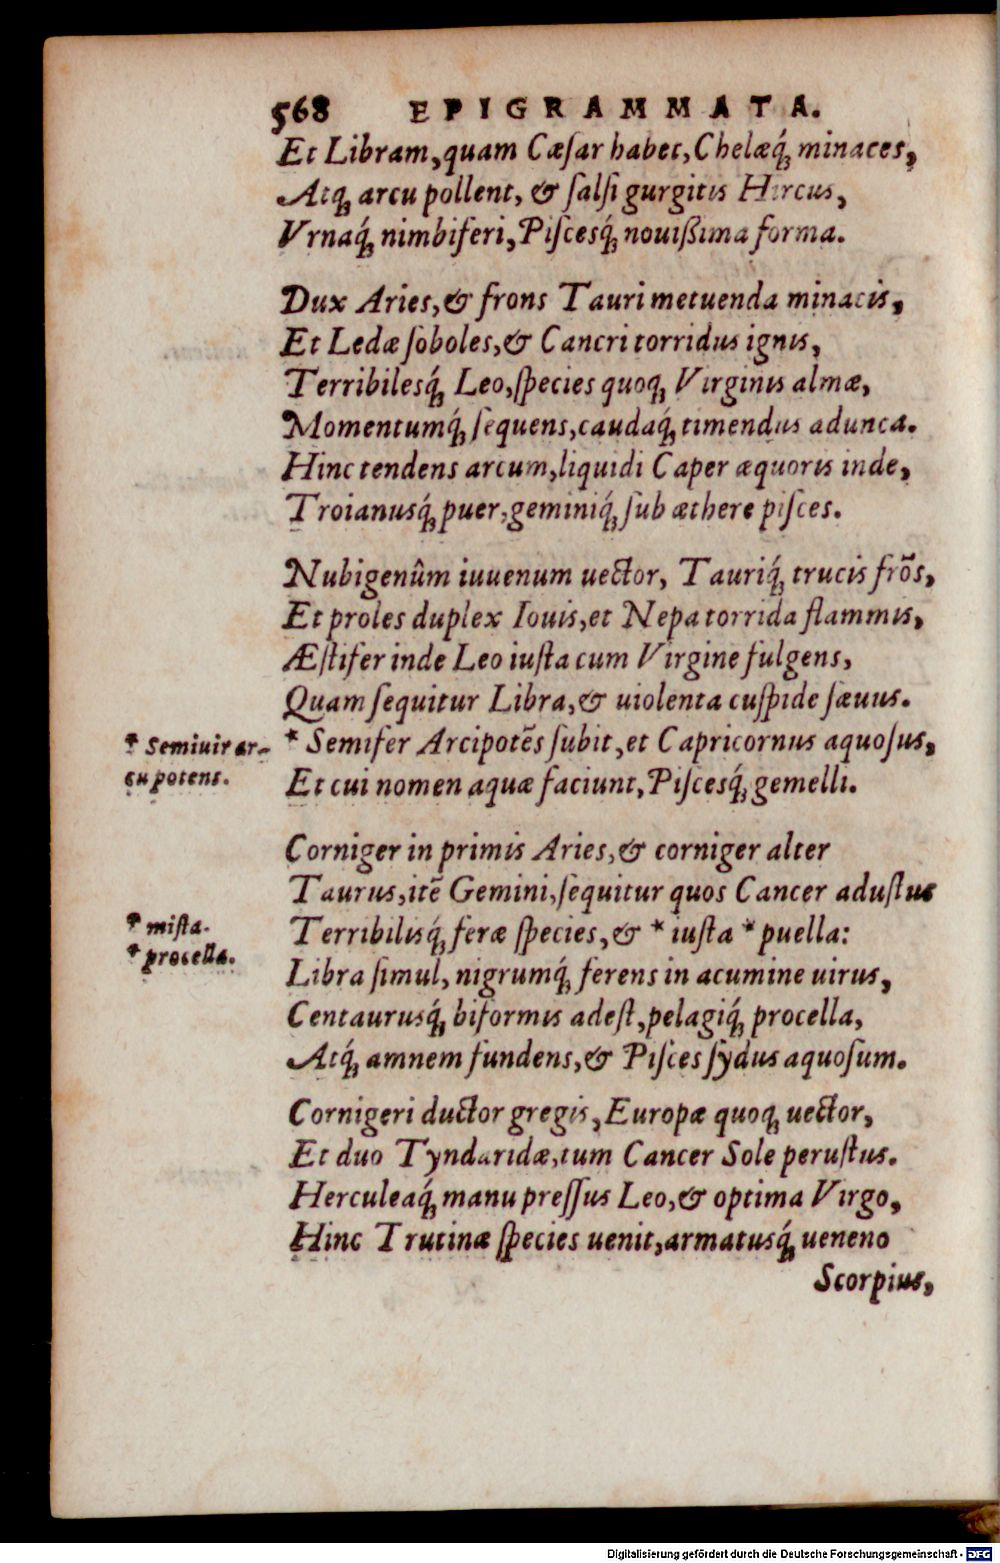 568 EPIGRAMMATA.
Et Libram, quam Cæſar habet, Chelæq́; minaces,
Atq; arcu pollent, & ſalſi gurgitis Hircus,
Vrnaq́; nimbiferi, Piſcesq́; nouißima forma.
Dux Aries, & frons Tauri metuenda minacis,
Et Ledæ ſoboles, & Cancri torridus ignis,
Terribilesq́; Leo, ſpecies quoq; Virginis almæ,
Momentumq́; ſequens, caudaq́; timendus adunca.
Hinc tendens arcum, liquidi Caper æquoris inde,
Troianusq́; puer, geminiq́; ſub æthere piſces.
Nubigenûm iuuenum uector, Tauriq́; trucis frōs,
Et proles duplex Iouis, et Nepa torrida flammis,
Æſtifer inde Leo iuſta cum Virgine fulgens,
Quam ſequitur Libra, & uiolenta cuſpide ſæuus.
* Semiuir ar-
cu potens.
* Semifer Arcipotēs ſubit, et Capricornus aquoſus,
Et cui nomen aquæ faciunt, Piſcesq́; gemelli.
Corniger in primis Aries, & corniger alter
Taurus, itē Gemini, ſequitur quos Cancer aduſtus
* miſta.
* procella.
Terribilisq́; feræ ſpecies, & * iuſta * puella:
Libra ſimul, nigrumq́; ferens in acumine uirus,
Centaurusq́; biformis adeſt, pelagiq́; procella,
Atq́; amnem fundens, & Piſces ſydus aquoſum.
Cornigeri ductor gregis, Europæ quoq; uector,
Et duo Tyndaridæ, tum Cancer Sole peruſtus.
Herculeaq́; manu preſſus Leo, & optima Virgo,
Hinc Trutinæ ſpecies uenit, armatusq́; ueneno
Scorpius,
Digitalisierung gefördert durch die Deutsche Forschungsgemeinschaft - DFG